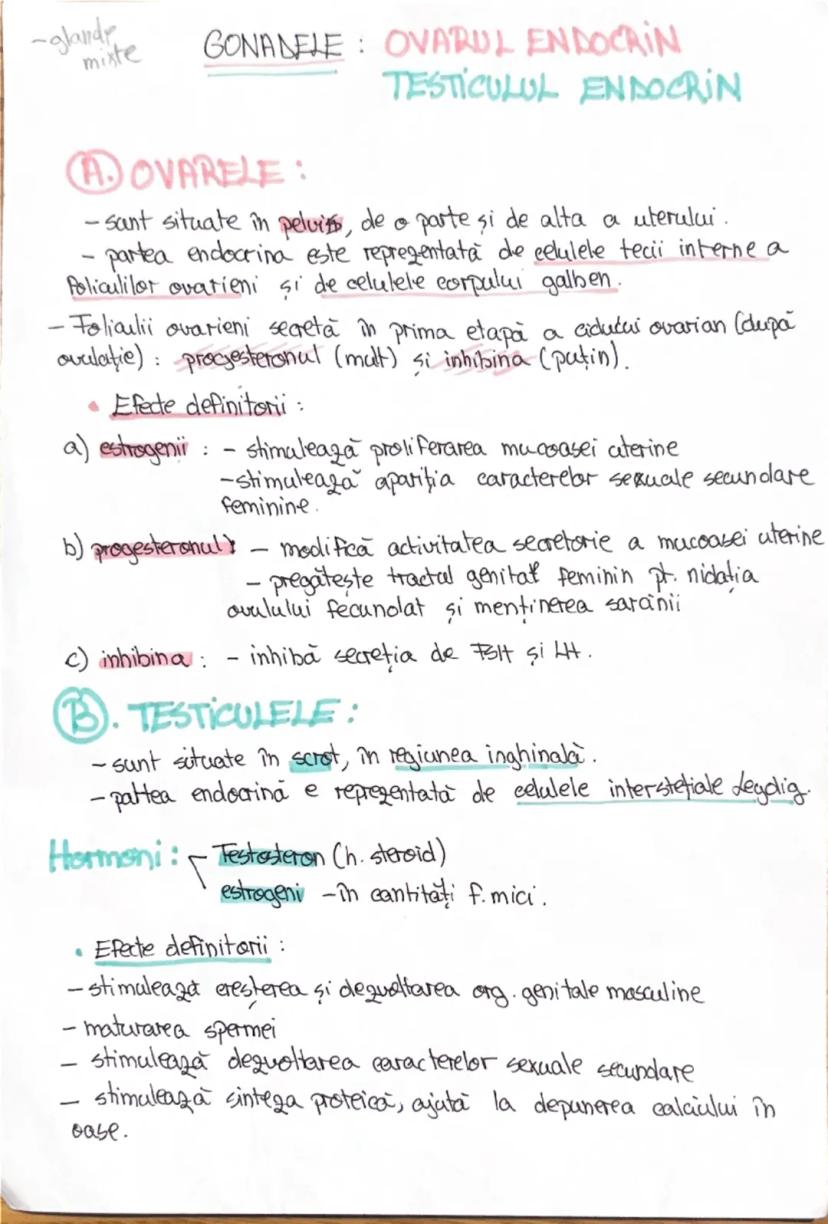 -glande
mixte
GONADELE : OVARUL ENDOCRIN
TESTICULUL ENDOCRIN
A. OVARELE :
- sunt situate în pelvis, de o parte și de alta a uterului.
- partea endocrina este reprezentată de celulele tecii interne a
foliculilor ovarieni și de celulele corpului galben.
- Foliculii ovarieni secretă în prima etapă a ciclului ovarian (după
ovulație) : progesteronul (mult) și inhibina (puțin).
• Efecte definitorii :
a) estrogenii : - stimulează proliferarea mucoasei uterine
- stimulează apariția caracterelor sexuale secundare
feminine.
b) progesteronul : - modifică activitatea secretorie a mucoasei uterine
- pregătește tractul genital feminin pt. nidația
ovulului fecundat și menținerea sarcinii
c) inhibina : - inhibă secreția de FSH și LH.
B. TESTICULELE :
- sunt situate în scrot, în regiunea inghinală.
- partea endocrină e reprezentată de celulele interstețiale Leydig.
Hormoni : Testosteron (h. steroid)
estrogeni - în cantități f. mici.
• Efecte definitorii :
- stimulează creșterea și dezvoltarea org. genitale masculine
- maturarea spermei
- stimulează dezvoltarea caracterelor sexuale secundare
- stimulează sinteza proteică, ajută la depunerea calciului în
oase.